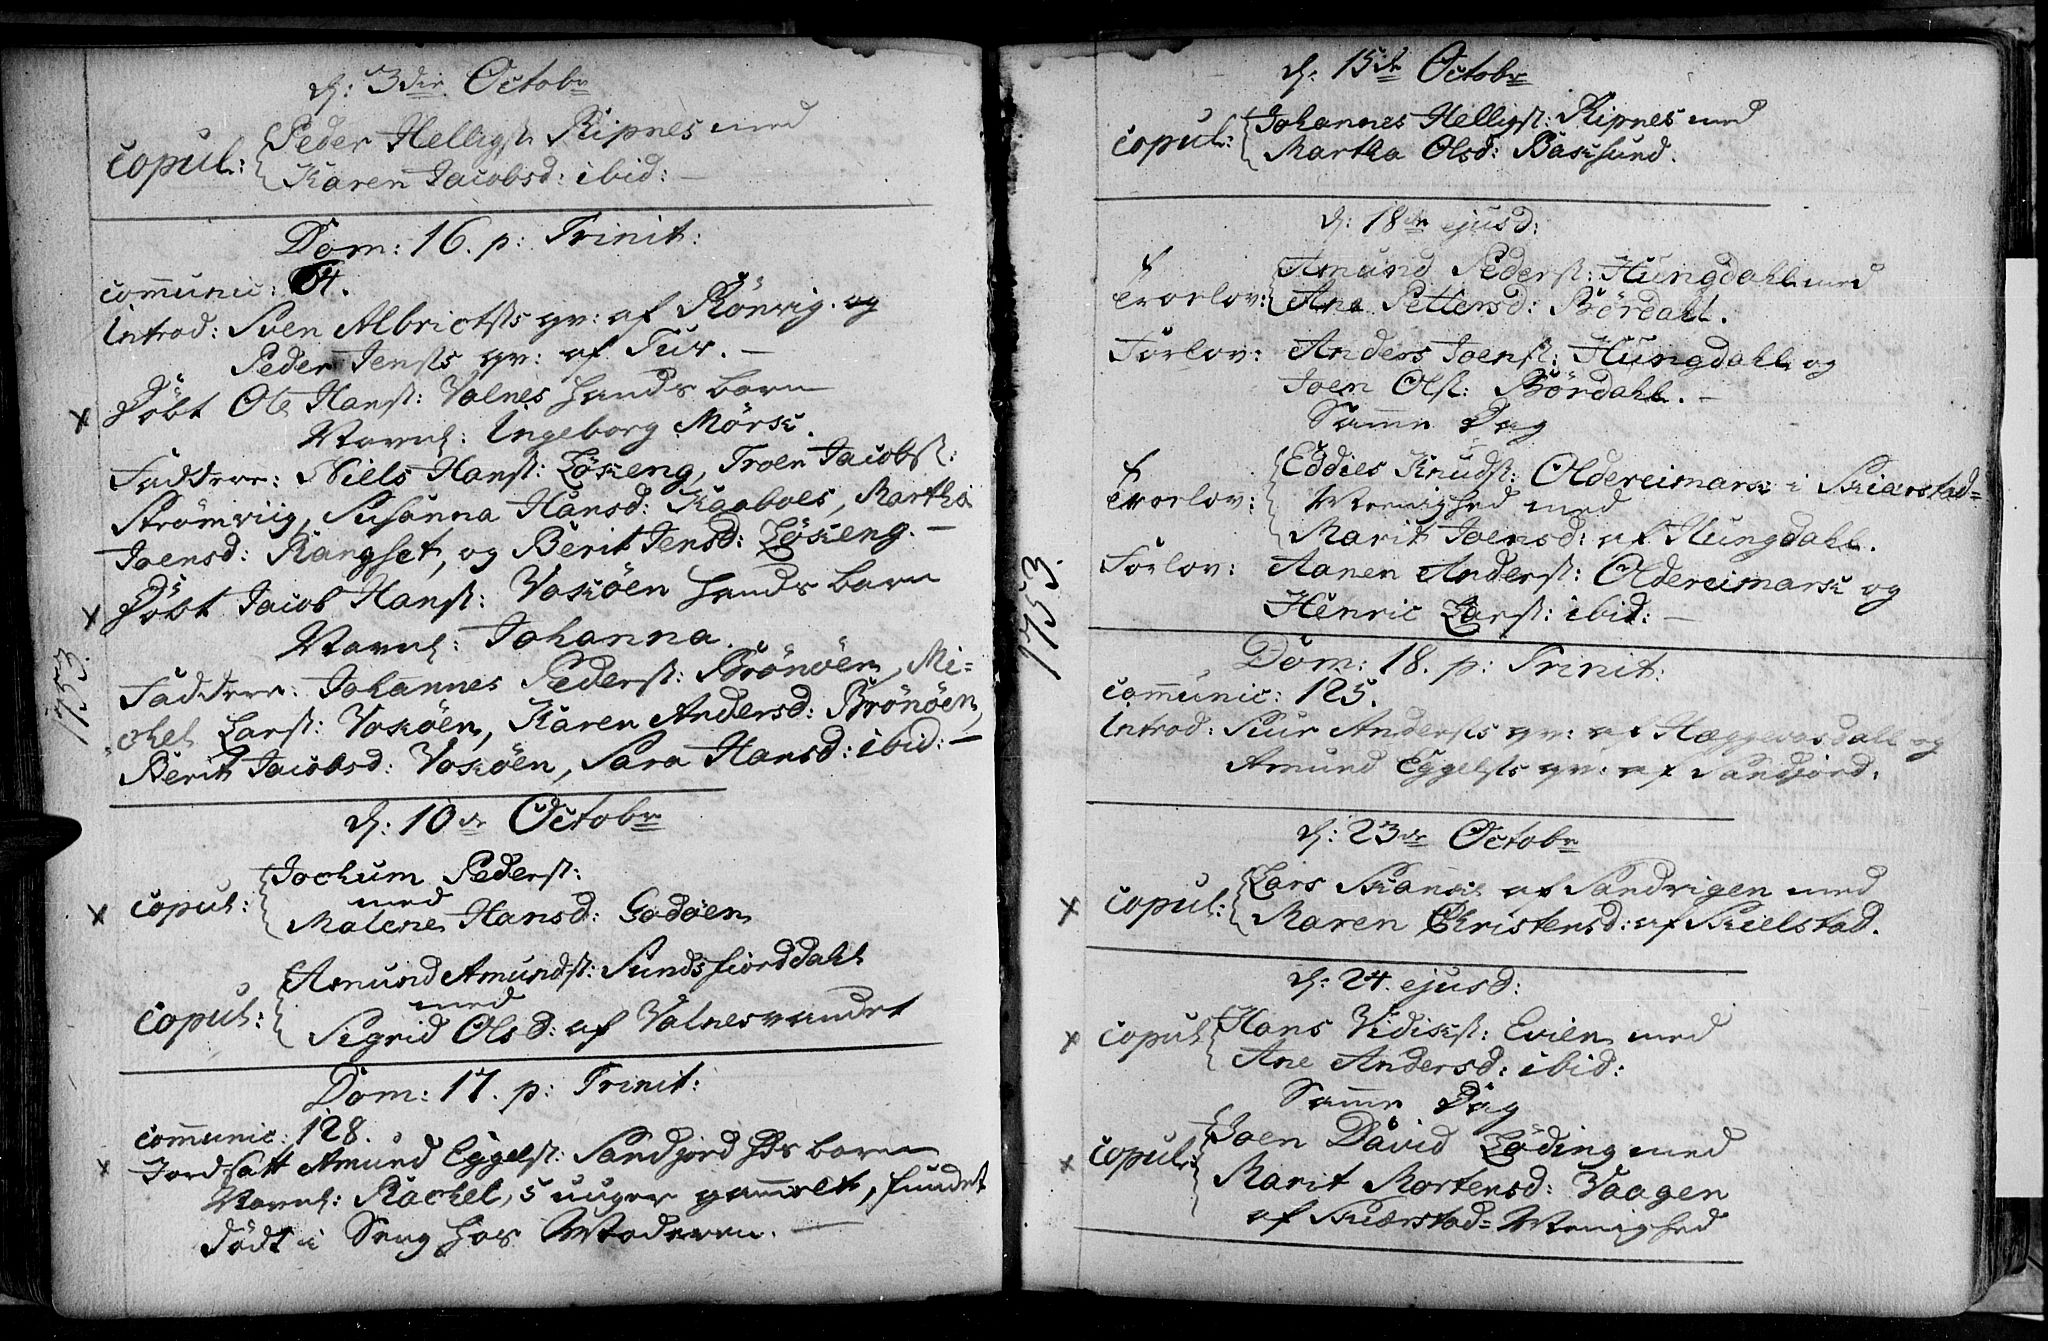 d: 3die Octobr
copul: Peder Helligst: Ripnes med
Karen Jacobsd: ibid: –
Dom: 16. p: Trinit:
com̄unic: 64.
Introd: Sven Albrictsts qv: af Rönvig. og
Peder Jensts qv: af Tuv. –
× Döbt Ole Hanst: Valnes hands barn
Navnl: Ingeborg Mörsc.
Faddere: Niels Hanst: Löseng, Troen Jacobst:
Strömviig, Susanna Hansd: Kaaboes, Martha
Joensd: Rangset, og Berit Jensd: Löseng. –
× Döbt Jacob Hanst: Vosöen hands barn
Navnl: Johanna.
Faddere: Johannes Pederst: Brönöen, Mi=
ckel Larst: Vosöen, Karen Andersd: Brönöen,
Berit Jacobsd: Vosöen, Sara Hansd: ibid: –
1753.
d: 10de Octobr
× copul: Jochum Pederst:
med
Malene Hansd: Godöen
copul: Amund Amundst: Sundsfiorddahl
med
Sigrid Olsd: af Valnesvandet
Dom: 17. p: Trinit:
com̄unic: 128.
× Jordsatt Amund Eggelst: Sandjord hds barn
Navnl: Rachel, 5 uuger gam̄elt, fundet
dödt i Seng hos Moderen. –
d: 15de Octobr
copul: Johannes Helligst: Ripnes med
Martha Olsd: Bascsund.
d: 18de ejusd:
Trorlov: Amund Pederst: Hungdahl med
Ane Pettersd: Bördahl.
Forlov: Anders Joenst: Hungdahl og
Joen Olst: Bördahl. –
Sam̄e Dag
Trorlov: Eddies Knudst: Oldereimarsc i Skierstad=
Menighed med
Marit Joensd: af Hungdahl.
Forlov: Aanen Anderst: Oldereimarsc og
Henric Larst: ibid: –
1753.
Dom: 18. p: Trinit:
com̄unic: 125.
Introd: Siur Andersts qv: af Hæggevasdahl og
Amund Eggelsts qv: af Sandjord:
d: 23de Octobr
× copul: Lars af Sandvigen med
Maren Christensd: af Skielstad.
d: 24. ejusd:
× copul Hans Vidiscst: Evien med
Ane Andersd: ibid:
Sam̄e Dag
× copul: Joen David Löding med
Marit Mortensd: Vaagen
af Skierstad= Menighed